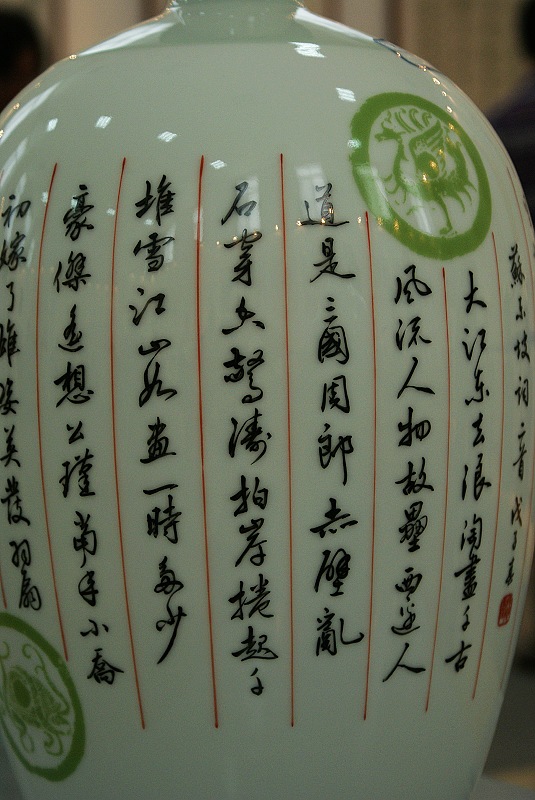 蘇东坡詞二首 戊子春
大江东去浪淘盡千古
風流人物故壘西邊人
道是三國周郎赤壁亂
石穿空驚濤拍岸捲起千
堆雪江山如畫一時多少
豪傑遙想公瑾當年小喬
初嫁了雄姿英發羽扇